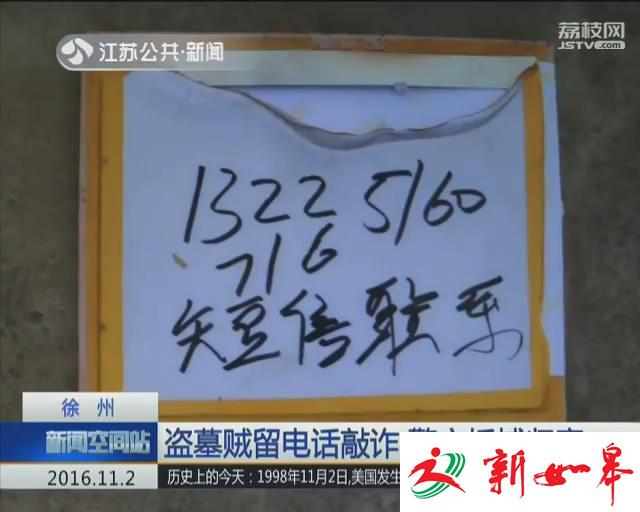 江苏公共·新闻
荔枝网
JSTV.com
1322 5160
716
短信联系
徐州
新闻空间站
2016.11.2
盗墓贼留电话敲诈
历史上的今天：1998年11月2日，美国发生
新如皋